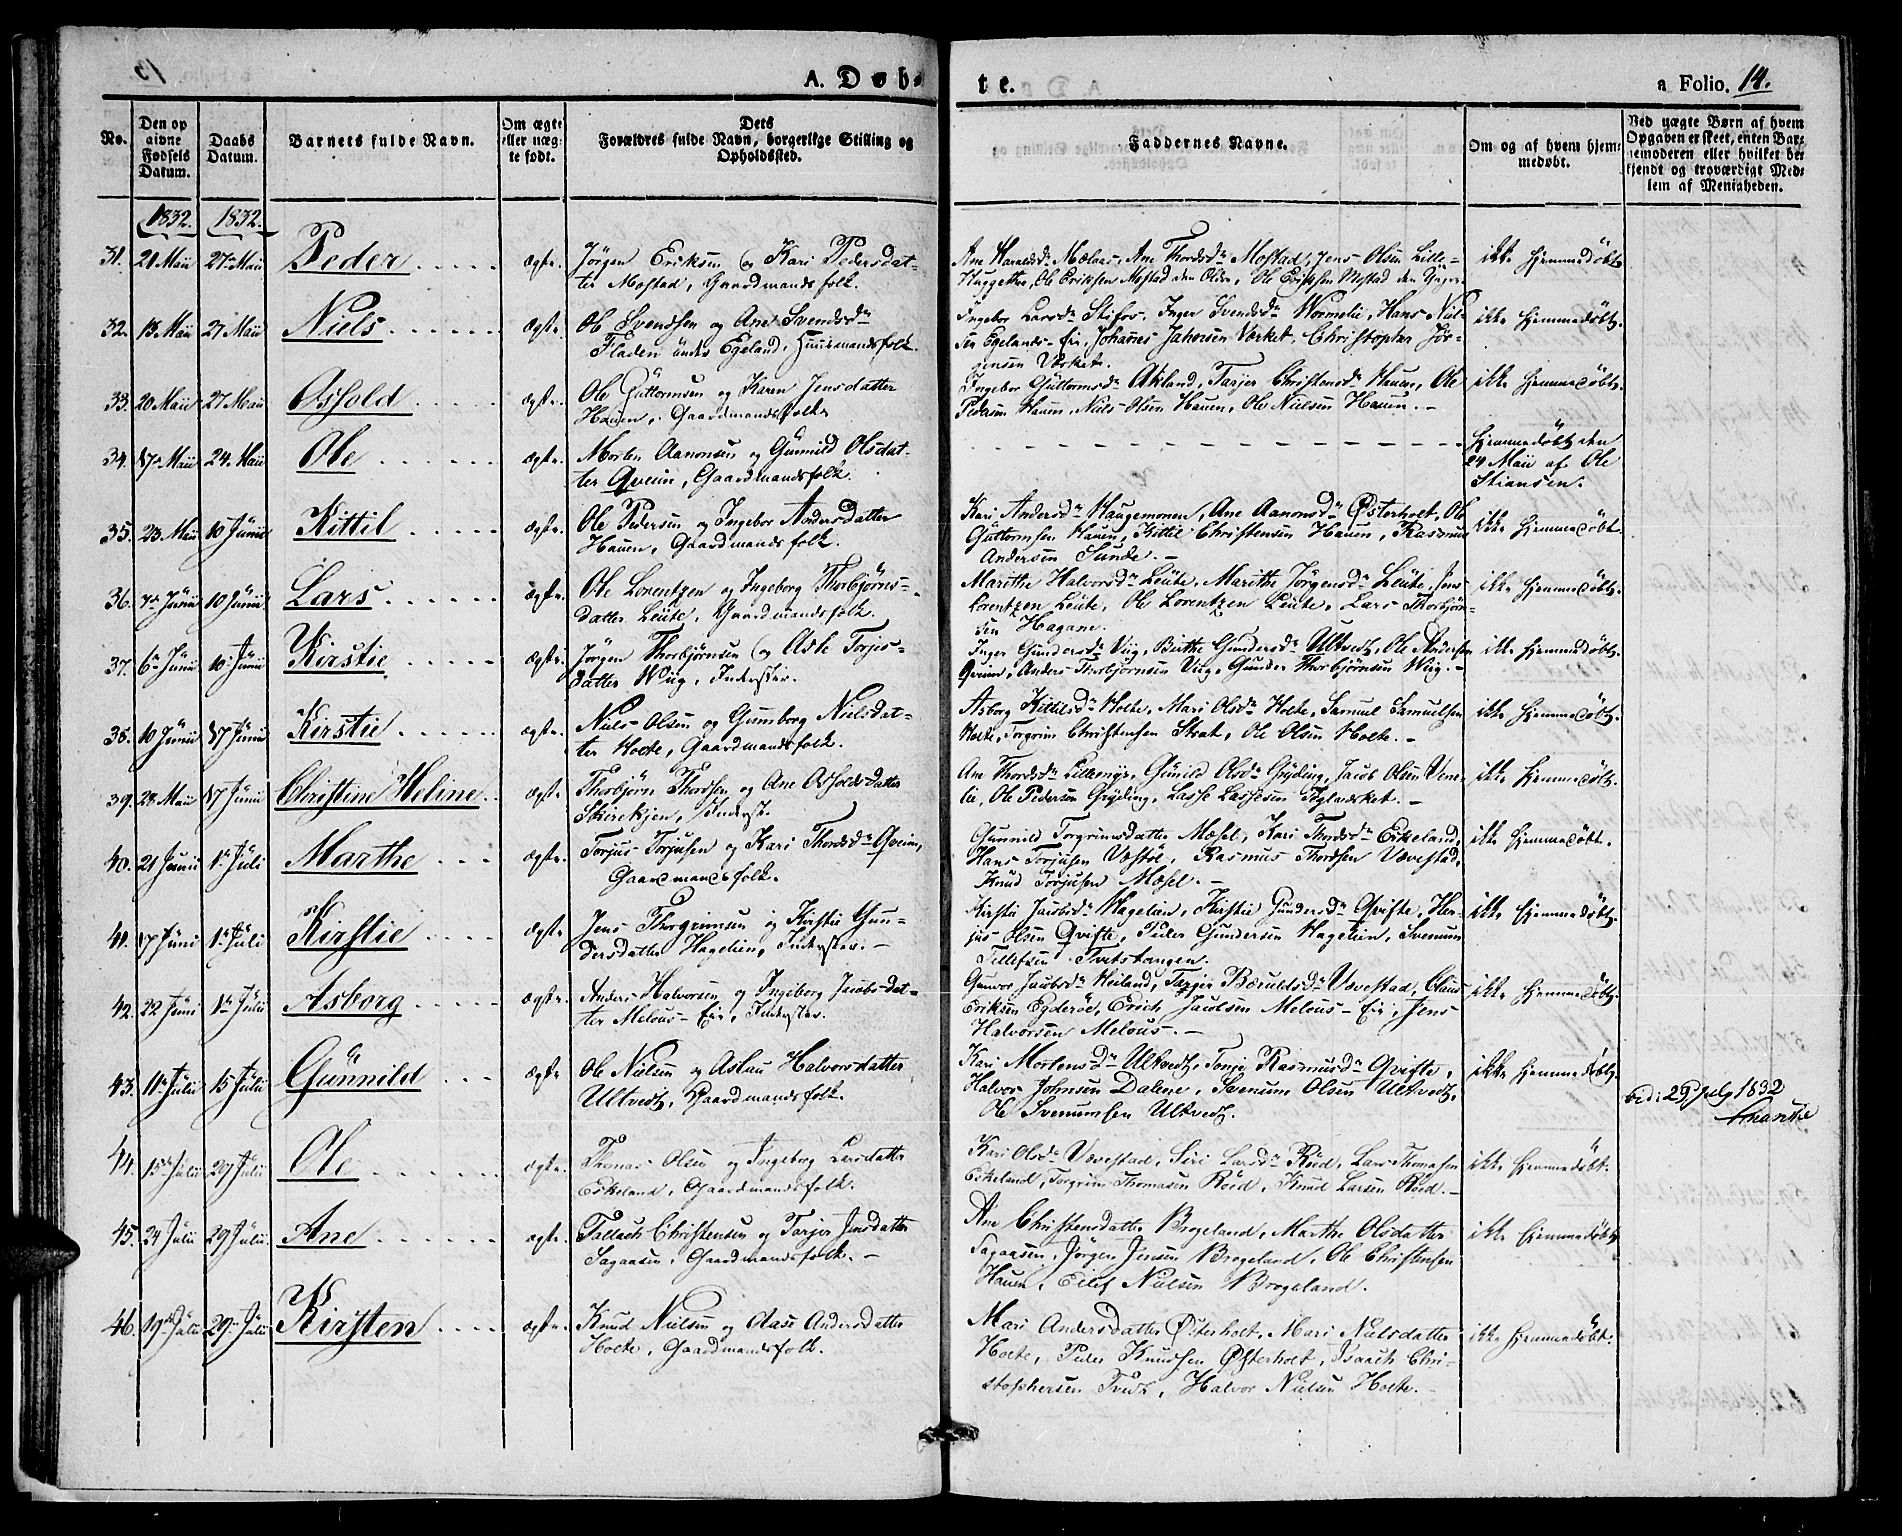 A. Døb-
te. a Folio. 14.
No. Den op givne Fødsels Datum. Daabs Datum. Barnets fulde Navn. Om ægte eller uæg- te født. Dets Forældres fulde Navn, borgerlige Stilling og Opholdssted. Faddernes Navne. Om og af hvem hjem- medøbt. Ved uægte Børn af hvem Opgaven er skeet, enten Bar- nemoderen eller hvilket be- kjendt og troværdigt Med- lem af Menigheden.
1832. 1832.
31. 21 Maii 27 Maii Peder ægte. Jørgen Eriksen og Kari Pedersdat-
ter Mostad, Gaardmandsfolk.
Ane Thordsdr Mostad, Jens Olsen Lille-
Ole Eriksen Mostad den Ældre, Ole Eriksen Mostad den Yngre.
ikke hjemmedøbt.
32. 13 Maii 27 Maii Niels ægte. Ole Svendsen og Ane Svendsdr
Fladen under Egeland, Huusmandsfolk.
Ingebor Larsdr Stifos, Inger Svendsdr Hans Niel-
sen Egelands-Eie, Johannes Værket, Christopher Jør-
gensen Værket.
ikke hjemmedøbt.
33. 20 Maii 27 Maii Osfold ægte. Ole Guttormsen og Karen Jensdatter
Hauen, Gaardmandsfolk.
Ingebor Guttormsdr Akland, Tarjer Christensdr Hauen, Ole
Pedersen Hauen, Niels Olsen Hauen, Ole Nielsen Hauen.
ikke hjemmedøbt.
34. 17 Maii 24 Maii Ole ægte. Morten Aanonsen og Gunnild Olsdat-
ter Qveim, Gaardmandsfolk.
Hjemmedøbt den
24 Maii af Ole
Stiansen.
35. 23 Maii 10 Junii Kittil ægte. Ole Pedersen og Ingebor Andersdatter
Hauen, Gaardmandsfolk.
Kari Andersdr Haugemonen, Ane Aanonsdr Østerholt, Ole
Guttormsen Hauen, Kittil Christensen Hauen, Rasmus
Andersen Sunde.
ikke hjemmedøbt.
36. 7 Junii 10 Junii Lars ægte. Ole Lorentzen og Ingeborg Thorbjørns-
datter Leüte, Gaardmandsfolk.
Marithe Halvorsdr Leüte, Marithe Jørgensdr Leüte, Jens
Lorentzen Leüte, Ole Lorentzen Leüte, Lars Thorbjørn-
sen Hagane.
ikke hjemmedøbt.
37. 6 Junii 10 Junii Kirstie ægte. Jørgen Thorbjørnsen og Asle Torjis-
datter Wiig, Inderster.
Inger Gundersdr Viig, Birthe Gundersdr Ultvedt, Ole Andersen
Qveim, Anders Thorbjørnsen Viig, Gunder Thorbjørnsen Wiig.
ikke hjemmedøbt.
38. 10 Junii 17 Junii Kirstie ægte. Niels Olsen og Gumborg Nielsdat-
ter Holte, Gaardmandsfolk.
Asborg Kittilsdr Holte, Mari Olsdr Holte, Samuel Samuelsen
Holte, Torgrim Christensen Strat, Ole Olsen Holte.
ikke hjemmedøbt.
39. 28 Maii 17 Junii Christine Heline ægte. Thorbjørn Thordsen og Ane Osfoldsdatter
Inderst.
Ane Thordsdr Lillemyr, Gunild Olsdr Gryding, Jacob Olsen Vene-
lie, Ole Pedersen Gryding, Lasse Lassesen
ikke hjemmedøbt.
40. 21 Junii 1 Juli Marthe ægte. Torjus Torjusen og Kari Thordsdr Qveim,
Gaardmandsfolk.
Gunnild Torgrimsdatter Mosel, Kari Thordsdr Eskeland,
Hans Torjusen Væstøl, Rasmus Thordsen Vævestad,
Knud Torjusen Mosel.
ikke hjemmedøbt.
41. 17 Juni 1 Juli Kirstie ægte. Jens Thorgrimsen og Kirstie Gun-
dersdatter Hagelien, Inderster.
Kirstie Jacobsdr Hagelien, Kirstie Gundersdr Qvifte, Her-
jus Olsen Qvifte, Peder Gundersen Hagelien, Svenum
Tellefsen Tvitstangen.
ikke hjemmedøbt.
42. 22 Juni 1 Julii Asborg ægte. Anders Halvorsen og Ingeborg Jacobsdat-
ter Melous-Eie, Inderster.
Gunvor Jacobsdr Heiland, Tarjer Bæruldsdr Vævestad, Claus
Eriksen Egderøe, Erich Jacobsen Melous-Eie, Jens
Halvorsen Melous.
ikke hjemmedøbt.
43. 11 Julii 15 Julii Gunnild ægte. Ole Nielsen og Aslau Halvorsdatter
Ultvedt, Gaardmandsfolk.
Kari Mortensdr Ultvedt, Tonje Rasmusdr Qvifte,
Halvor Johnsen Dalene, Svenum Olsen Ultvedt,
Ole Svenumsen Ultvedt.
ikke hjemmedøbt.
29 July 1832
44. 15 Julii 29 Julii Ole ægte. Thomas Olsen og Ingeborg Larsdatter
Eskeland, Gaardmandsfolk.
Kari Olsdr Vævestad, Siri Larsdr Röed, Lars Thomasen
Eskeland, Torgrim Thomasen Röed, Knud Larsen Röed.
ikke hjemmedøbt.
45. 24 Julii 29 Julii Ane ægte. Tallach Christensen og Tarjer Jensdatter
Sagaasen, Gaardmandsfolk.
Ane Christensdatter Brogeland, Marthe Olsdatter
Sagaasen, Jørgen Jensen Brogeland, Ole Christensen
Hauen, Eilef Nielsen Brogeland.
ikke hjemmedøbt.
46. 19 Julii 29 Julii Kirsten ægte. Knud Nielsen og Aase Andersdatter
Holte, Gaardmandsfolk.
Mari Andersdatter Østerholt, Mari Nielsdatter
Holte, Peder Knudsen Østerholt, Isaach Chri-
stophersen Tveit, Halvor Nielsen Holte.
ikke hjemmedøbt.